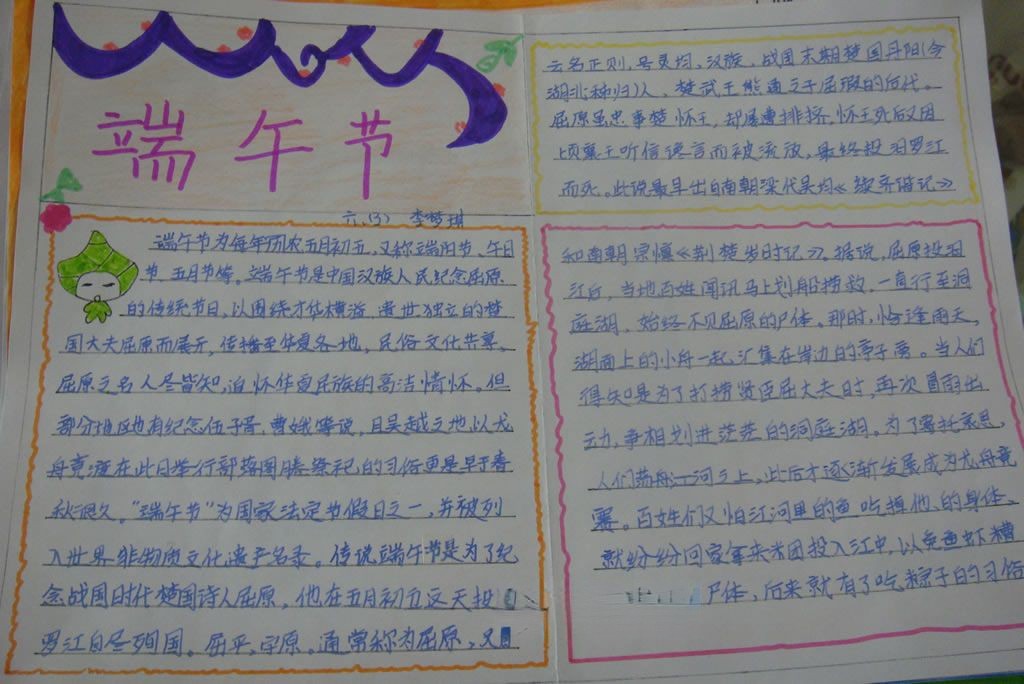 端午节
六、(3) 李梦琪
端午节为每年历农五月初五,又称端阳节、午日
节、五月节等。端午节是中国汉族人民纪念屈原
的传统节日,以围绕才华横溢、遗世独立的楚
国大夫屈原而展示,传播至华夏各地,民俗文化共享。
屈原之名人尽皆知,追怀华夏民族的高洁情怀。但
部分地区也有纪念伍子胥、曹娥等说,且吴越之地以龙
舟竞渡在此日举行部落图腾祭祀的习俗更是早于春
秋很久。“端午节”为国家法定节假日之一,并被列
入世界非物质文化遗产名录。传说端午节是为了纪
念战国时代楚国诗人屈原,他在五月初五这天投
罗江自尽殉国。屈平,字原。通常称为屈原,又
云名正则,号灵均,汉族,战国末期楚国丹阳(今
湖北秭归)人,楚武王熊通之子屈瑕的后代。
屈原虽忠事楚怀王,却屡遭排挤,怀王死后又因
顷襄王听信谗言而被流放,最终投汨罗江
而死。此说最早出自南朝梁代吴均《续齐谐记》
和南朝宗懔《荆楚岁时记》。据说,屈原投汨
江后,当地百姓闻讯马上划船捞救,一直行至洞
庭湖,始终不见屈原的尸体。那时,恰逢雨天,
湖面上的小舟一起汇集在岸边的亭子旁。当人们
得知是为了打捞贤臣屈大夫时,再次冒雨出
动,争相划进茫茫的洞庭湖。为了寄托哀思,
人们荡舟江河之上,此后才逐渐发展成为龙舟竞
赛。百姓们又怕江河里的鱼吃掉他的身体,
就纷纷回家拿来米团投入江中,以免鱼虾糟
尸体,后来就有了吃粽子的习俗